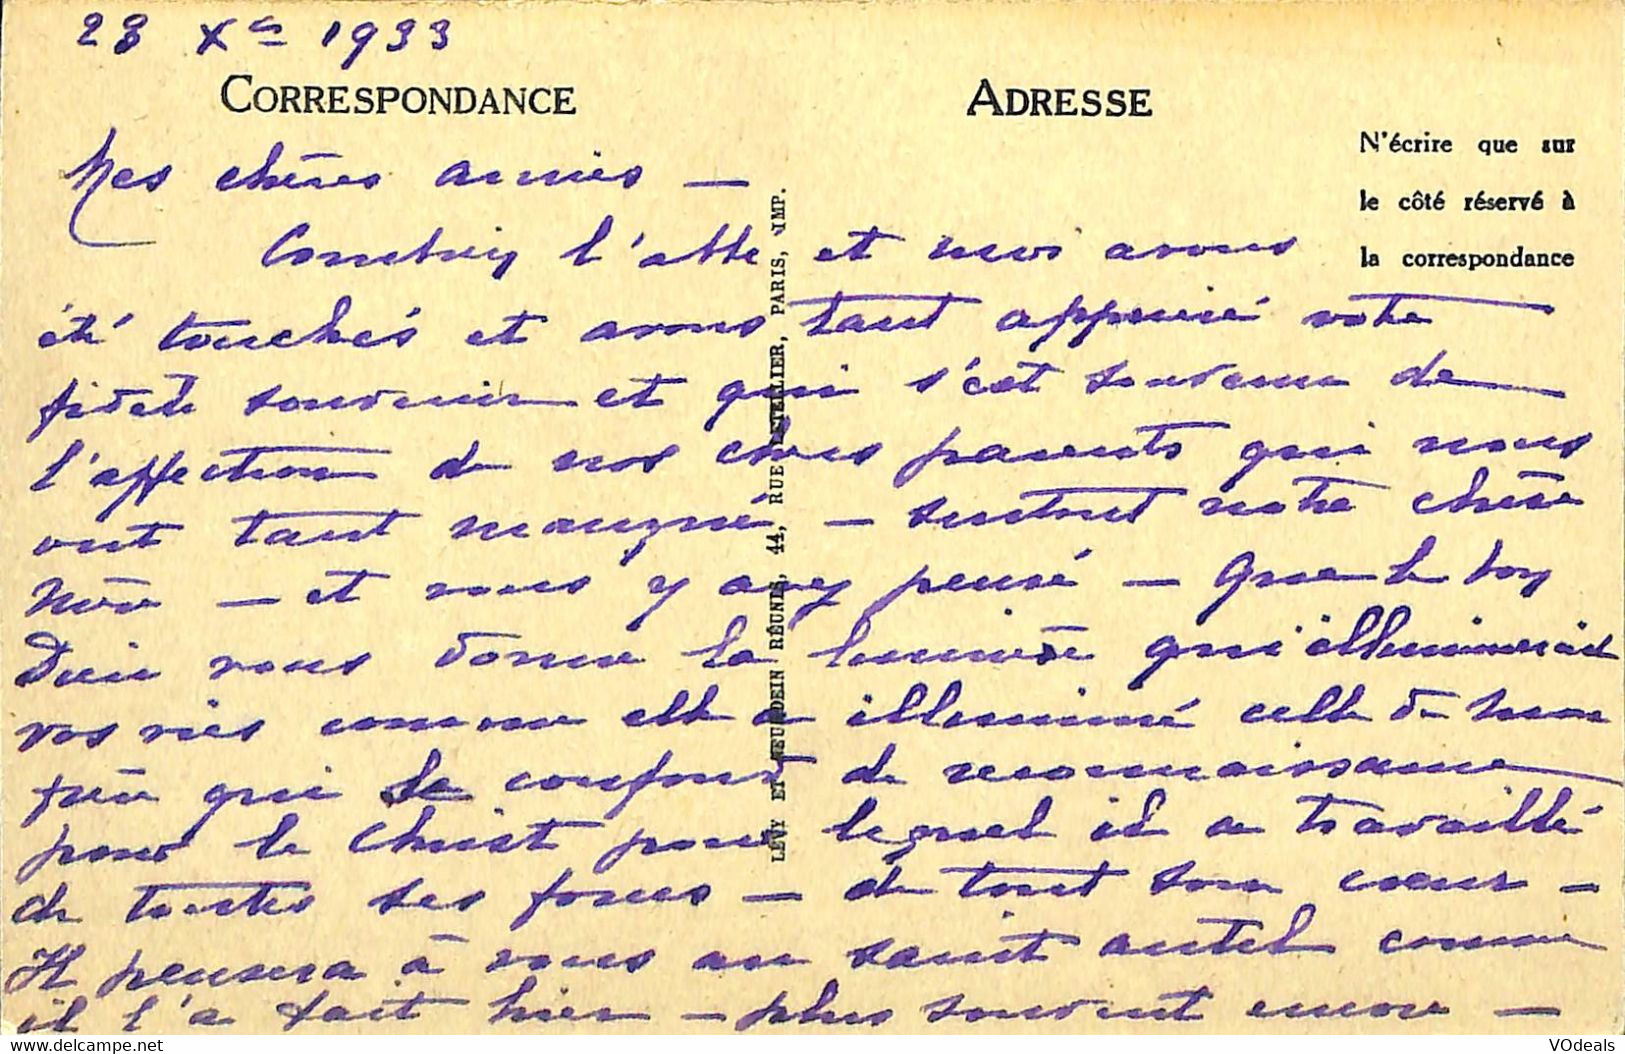 28 Xre 1933
CORRESPONDANCE
ADRESSE
N'écrire que sur
le côté réservé à
la correspondance
Mes chères amies —
Combien l'abbé et moi avons
été touchés et avons tant apprécié votre
fidèle souvenir et qui s'est souvenu de
l'affection de nos chers parents qui nous
ont tant manqué — surtout notre chère
Mère — et vous y avez pensé — Que le bon
Dieu vous donne la lumière qui illuminerait
vos vies comme elle a illuminé celle de mon
frère qui se confond de reconnaissance
pour le Christ pour lequel il a travaillé
de toutes ses forces — de tout son cœur —
Il pensera à vous au saint autel comme
il l'a fait hier — plus souvent encore —
LÉVY ET NEURDEIN RÉUNIS, 44, RUE LETELLIER, PARIS, IMP.
VOdeals
www.delcampe.net